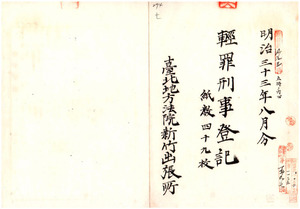 明治三十三年八月分
輕罪刑事登記
紙數四十九枚
臺北地方法院新竹出張所